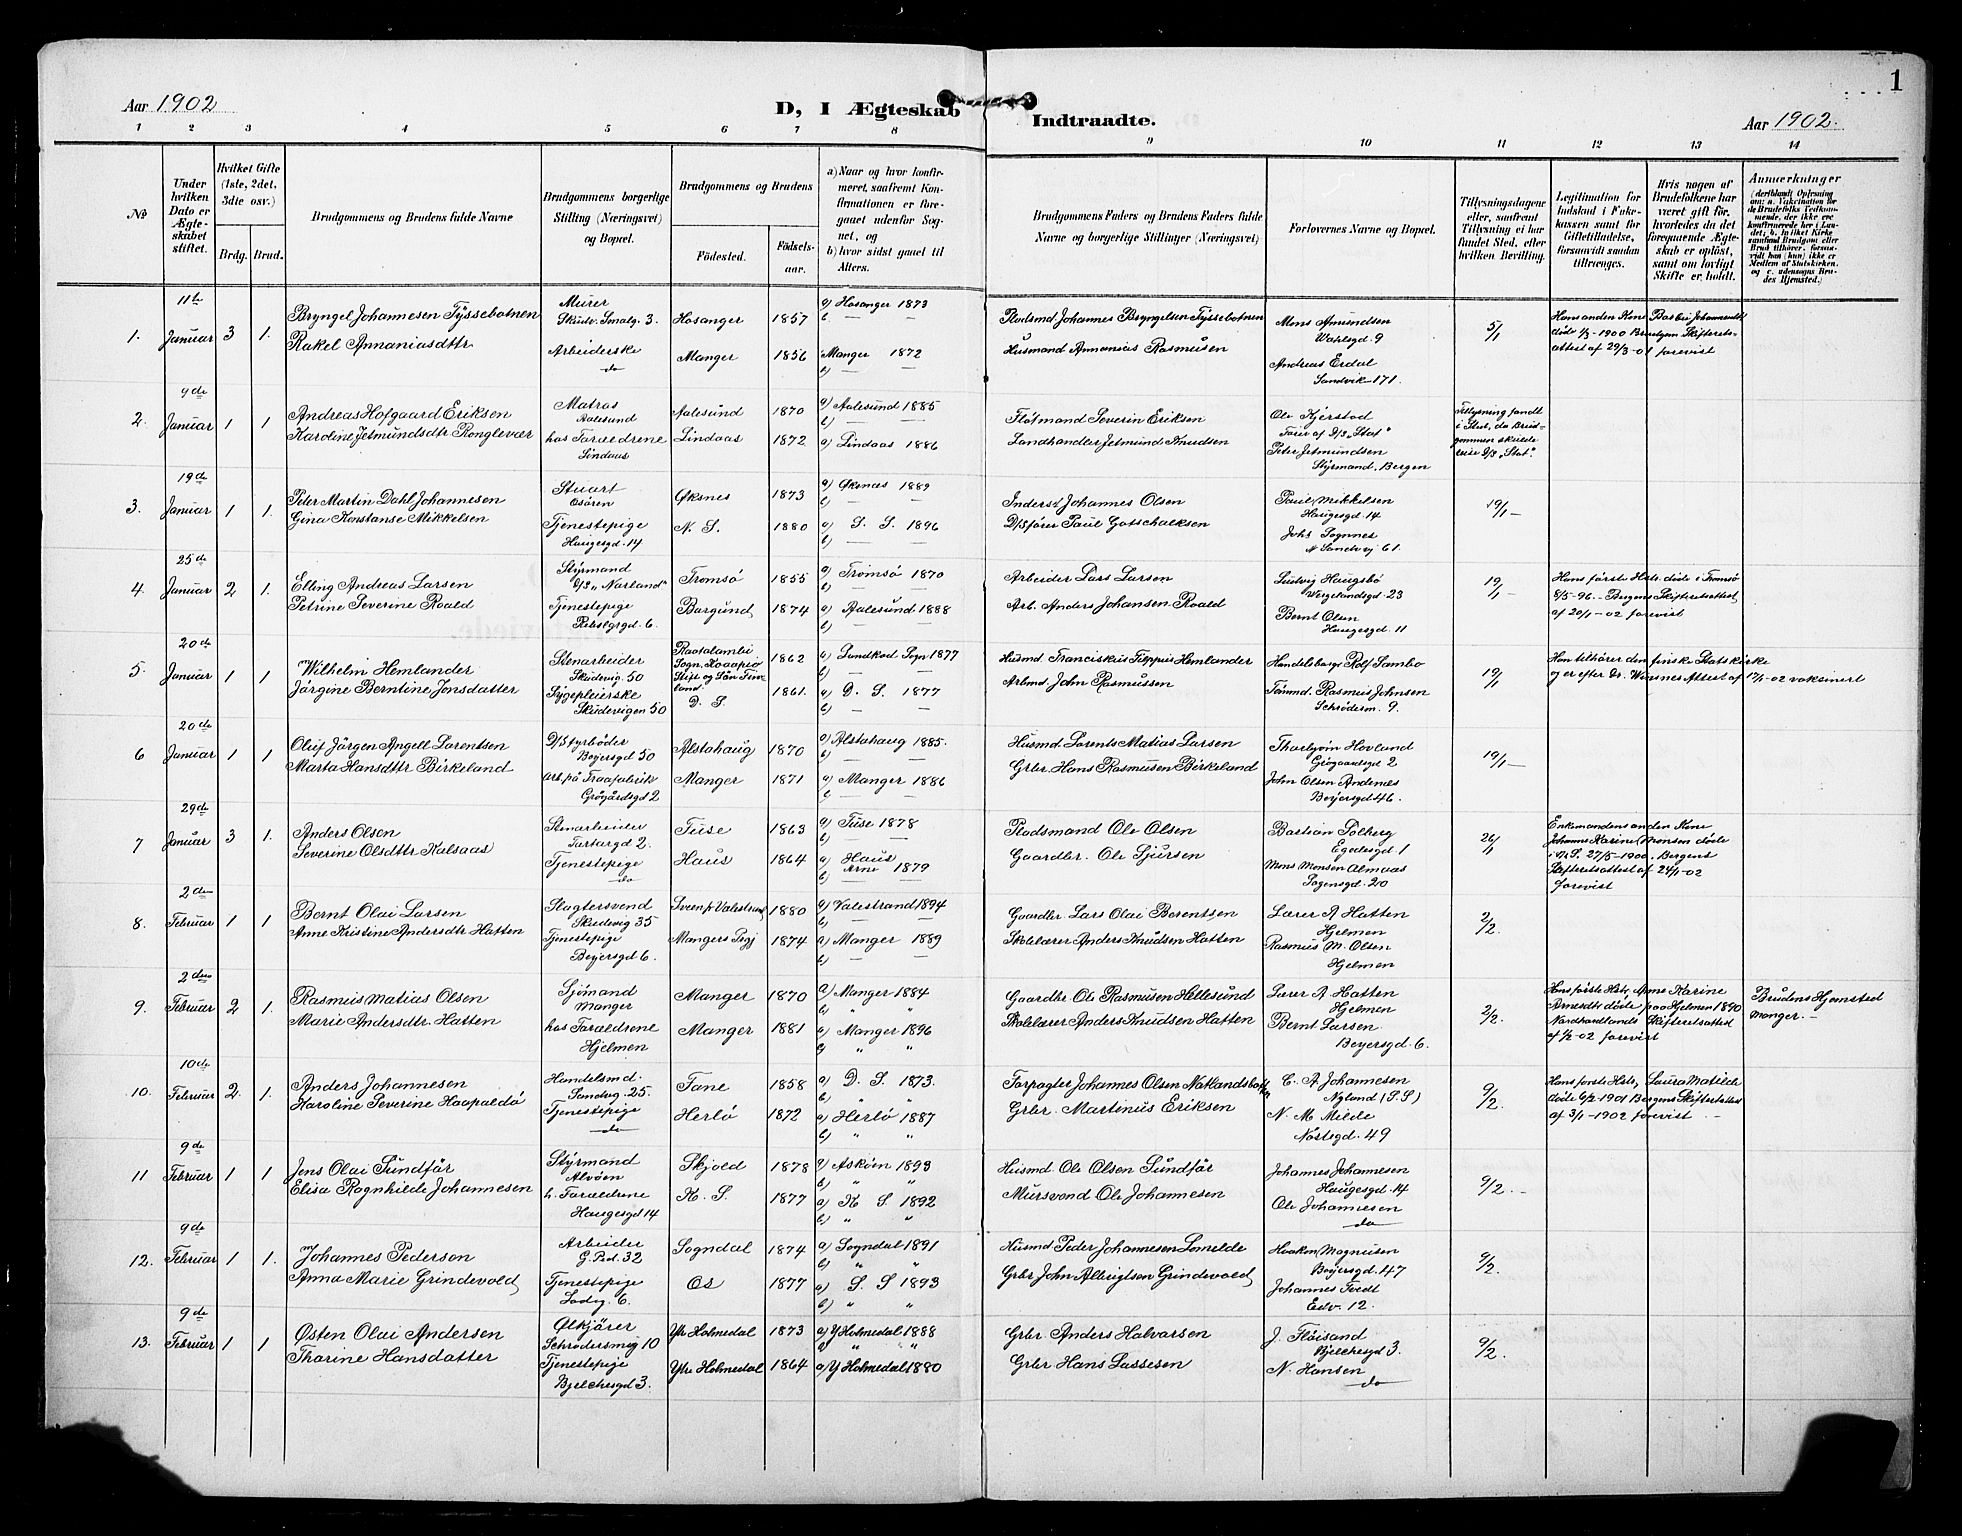 1
Aar 1902
D, I Ægteskab Indtraadte.
Aar 1902.
1 2 3 4 5 6 7 8 9 10 11 12 13 14
No
Under hvilken Dato er Ægteskabet stiftet.
Hvilket Gifte (1ste, 2det, 3dte osv.)
Brdg. Brud.
Brudgommens og Brudens fulde Navne
Brudgommens borgerlige Stilling (Næringsvei) og Bopæl.
Brudgommens og Brudens
Fødested.
Fødselsaar.
a) Naar og hvor konfirmeret, saafremt Konfirmationen er foregaaet udenfor Sognet, og
b) hvor sidst gaaet til Alters.
Brudgommens Faders og Brudens Faders fulde Navne og borgerlige Stillinger (Næringsvei)
Forlovernes Navne og Bopæl.
Tillysningsdagene eller, saafremt Tillysning ei har fundet Sted, efter hvilken Bevilling.
Legitimation for Indskud i Enkekassen samt for Giftetilladelse, forsaavidt saadan tiltrænges.
Hvis nogen af Brudefolkene har været gift før, hvorledes da det foregaaende Ægteskab er opløst, samt om lovligt Skifte er holdt.
Anmærkninger
1. 11te Januar 3 1.
Bryngel Johannesen Tyssebotnen
Murer Skudv. Smalg. 3. Hosanger 1857 a) Hosanger 1873 b) —
Pladsmd Johannes Bryngelsen Tyssebotnen
Rakel Annaniasdtr
Arbeiderske do Manger 1856 a) Manger 1872 b) —
Husmand Annanias Rasmusen
Mons Amundsen
Wahlsgd. 9
Andreas Erdal
Sandvik 171.
5/1
døde 1/3-1900
attest af 29/3-01 forevist
2. 9de Januar 1 1
Andreas Hofgaard Eriksen
Matros Aalesund Aalesund 1870 a) Aalesund 1885 b) —
Fløtmand Severin Eriksen
Karoline Jetmundsdtr Ronglevær
hos Foræedrene Lindaas Lindaas 1872 a) Lindaas 1886
Landhandler Jetmund Knudsen
Ole Kjerstad
Fører af D/S "Stat"
Peter Jetmundsen
Styrmand, Bergen
Tillysning fandt i Sted, da Brudgommen skulde reise D/S "Stat".
3. 19de Januar 1 1.
Peter Martin Dahl Johannesen
Stuart Osøren Øksnes 1873 a) Øksnæs 1889 b) —
Inders. Johannes Olsen
Gina Konstanse Mikkelsen
Tjenestepige Haugesgd. 14 N. S. 1880 a) S. S. 1896 b) —
D/Sfører Paul Gotschalksen
Paul Mikkelsen
Haugesgd. 14
Johs Sognnes
N Sandvvj 61.
19/1 —
4. 25de Januar 2 1.
Elling Andreas Larsen
Styrmand D/S "Norland" Tromsö 1855 a) Tromsö 1870 b) —
Arbeider Lars Larsen
Petrine Severine Roald
Tjenestepige Rebslgrgd. 6. Borgund 1874 a) Aalesund 1888 b) —
Arb. Anders Johansen Roald
Ludvig Haugsbö
Wergelandsgd. 23
Bernt Olsen
Haugesgd. 11
19/1 —
Hans förste Hstr. döde i Tromsö
8/5-96. – Bergens Skifteretsattest
af 20/1-02 forevist
5. 20de Januar 1 1.
Wilhelm Hemlander
Stenarbeider Skudevig. 50 1862 1877 b) —
Husmd Franciskus Filippus Hemlander
Jörgine Berntine Jonsdatter
Sygepleierske Skudevigen 50 D. S. 1861. a) D. S. 1877 b) —
Arbmd. John Rasmussen
Handelsborg. Rolf Sambo
Tömmd. Rasmus Johnsen
Schröderm. 9.
19/1
Han tilhører den finske Statskirke
og er efter Dr. Wiesnes Attest af 17/1-02 vaksinert
6 20de Januar 1 1
Oluf Jörgen Angell Lorentsen
D/S fyrböder Beyersgd 50 Alstahaug 1870 a) Alstahaug 1885. b) —
Husmd Lorents Matias Larsen
Marta Hansdttr Birkeland
Grögårdsgd 2 Manger 1871 a) Manger 1886 b) —
Grbr. Hans Rasmusen Birkeland
Thorbjörn Hovland
Grögaardsgd 2
John Olsen Andenæs
Beyersgd 46.
19/1 —
7 29de Januar 3 1.
Anders Olsen
Stenarbeider Tartargd 2. Fuse 1863 a) Fuse 1878 b) —
Pladsmand Ole Olsen
Severine Olsdttr Kalsaas
Tjenestepige do Haus 1864 a) Haus Arne 1879 b)
Gaardbr. Ole Sjursen
Bastian Solberg
Egedesgd. 1
Mons Monsen Almaas
Sogensgd. 20
26/1
Enkemandens anden Kone
Johanne Karine Monsen döde
i N.S. 27/5-1900, Bergens
Skifteretsattest af 24/1-02
forevist
8. 2den Februar 1 1
Bernt Olai Larsen
Slagtersvend Skudevig 35 1880 a) Valestrand 1894 b) —
Gaardbr. Lars Olai Berentsen
Anne Kristine Andersdtr Hatten
Tjenestepige Beyersgd 6. Mangers Pgj 1874 a) Manger 1889 b) —
Skolelærer Anders Knudsen Hatten
Lærer A Hatten
Hjelmen
Rasmus M. Olsen
Hjelmen
2/2.
9. 2den Februar 2 1.
Rasmus Matias Olsen
Sjömand Manger Manger 1870 a) Manger 1884 b) " "
Gaardbr Ole Rasmusen Hellesund
Marie Andersdtr. Hatten
hos Foræeldrene Hjelmen Manger 1881 a) Manger 1896 b) " "
Skolelærer Anders Knudsen Hatten
Lærer A Hatten
Hjelmen
Bernt Larsen
Beyersgd. 6.
2/2.
Hans förste Hstr. Anne Karine
Arnesdtr döde paa Hjelmen 1890
Nordhordlands Skifteretsattest
af 1/2-02 forevist
Brudens Hjemsted
Manger. –
10. 10de Februar 2. 1.
Anders Johannesen
Handelsmd. Sandvg. 25. Fane 1858 a) D. S. 1873. b) " "
Forpagter Johannes Olsen Natlandsbotten
Karoline Severine Haapaldö
Tjenestepige do Herlö 1872 a) Herlö 1887 b) " "
Grbr. Martinus Eriksen
C. A Johannesen
Nyland (S.S)
N. M. Milde
Nöstegd. 49
9/2.
Hans förste Hstr, Laura Matilde
döde 6/2 1901 Bergens Skifterattest
af 3/1-1902 forevist –
11 9de Februar 1 1
Jens Olai Sundför
Styrmand Alvöen Skjold 1878 a) Asköen 1893 b) " "
Husmd Ole Olsen Sundför
Elisa Ragnhilde Johannesen
h. Foræeldrene Haugesgd 14 K. S. 1877 a) K S. 1892 b) " "
Mursvend Ole Johannesen
Johannes Johannesen
Haugesgd. 14
Ole Johannesen
do
9/2. –
12. 9de Februar 1 1.
Johannes Pedersen
Arbeider G. Pst. 32 Sogndal 1874 a) Sogndal 1891 b) " "
Husmd Peder Johannesen Lomelde
Anna Marie Grindevold
Tjenestepige Ladvg. 6. Os 1877 a) S. S 1893 b) " "
Grbr John Albrigtson Grindevold
Haakon Magnusen
Beyersgd. 47
Johannes Tvedt
Edv. 12.
9/2.
13. 9de Februar 1 1
Østen Olai Andersen
Ølkjörer Schrödersmg 10 Ytr Holmedal 1873 a) Y Holmedal 1888 b) " "
Grbr Anders Halvarsen
Tharine Hansdatter
Tjenestepige Bjelchesgd 3. Ytr Holmedal 1864 a) Y Holmedal 1880
Grbr Hans Lassesen
J. Flöisand
Bjelchesgd 3.
N. Hansen
do
9/2.